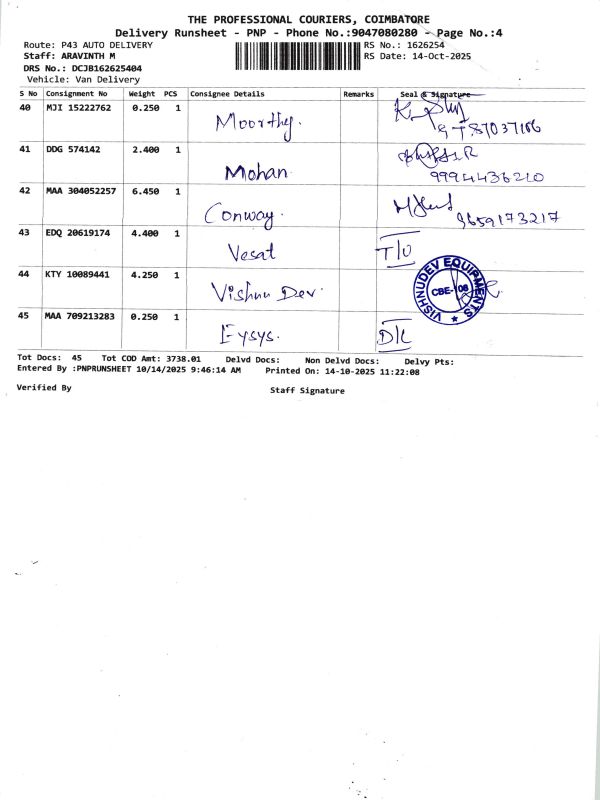 THE PROFESSIONAL COURIERS, COIMBATORE
Delivery Runsheet - PNP - Phone No.:9047080280 - Page No.:4
Route: P43 AUTO DELIVERY RS No.: 1626254
Staff: ARAVINTH M RS Date: 14-Oct-2025
DRS No.: DCJB162625404
Vehicle: Van Delivery
S No Consignment No Weight PCS Consignee Details Remarks Seal & Signature
40 MJI 15222762 0.250 1 Moorthy.
41 DDG 574142 2.400 1 Mohan
9994436210
42 MAA 304052257 6.450 1 Conway.
9659173217
43 EDQ 20619174 4.400 1 Vesat T/U
44 KTY 10089441 4.250 1 Vishnu Dev.
VISHNUDEV EQUIPMENTS
CBE-
45 MAA 709213283 0.250 1 Eysys. D/L
Tot Docs: 45 Tot COD Amt: 3738.01 Delvd Docs: Non Delvd Docs: Delvy Pts:
Entered By :PNPRUNSHEET 10/14/2025 9:46:14 AM Printed On: 14-10-2025 11:22:08
Verified By Staff Signature